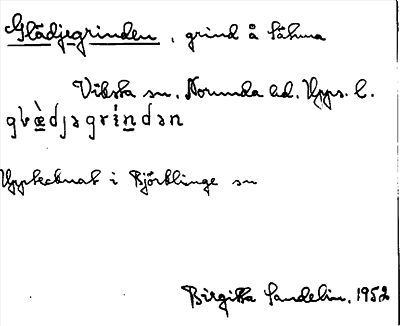 Glädjegrinden, grind å Såhma
Viksta sn. Norunda hd. Upps. l.
Upptecknat i Björklinge sn
Birgitta Sandelin, 1952